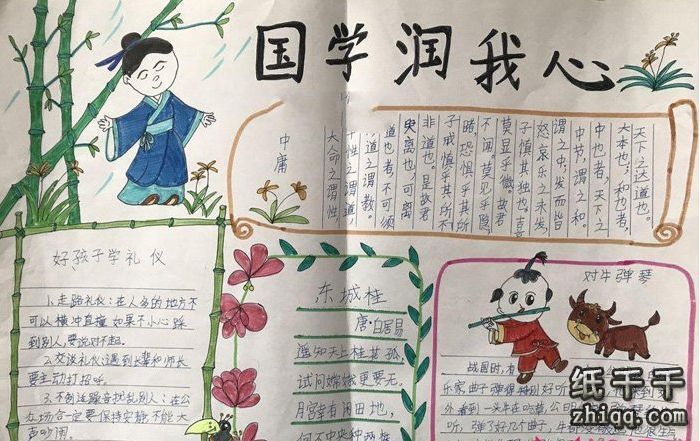 国学润我心
中庸
大命之谓性,
十性之谓道,
道之谓教。
道也者不可须
臾离也,可离
非道也,是故君
子戒慎乎其所不
睹,恐惧乎其所
不闻。莫见乎隐
莫显乎微。故君
子慎其独也。喜
怒哀乐之未发
谓之中,发而皆
中节,谓之和。
中也者,天下之
大本也;和也者,
天下之达道也。
好孩子学礼仪
1.走路礼仪:在人多的地方不
可以横冲直撞如果不小心踩
到别人,要说对不起。
2.交谈礼仪:遇到长辈和师长
要主动打招呼。
3.不制造噪音扰乱别人:在公
众场合一定要保持安静不能大
声吵闹。
东城桂
唐·白居易
遥知天上桂花孤,
试问嫦娥更要无。
月宫幸有闲田地,
何不中央种两株
对牛弹琴
战国时,有
乐家曲子弹得特别好听
外看到一头牛在吃草,公明
听,弹了好几个曲子,牛
纸千千
zhiqq.com